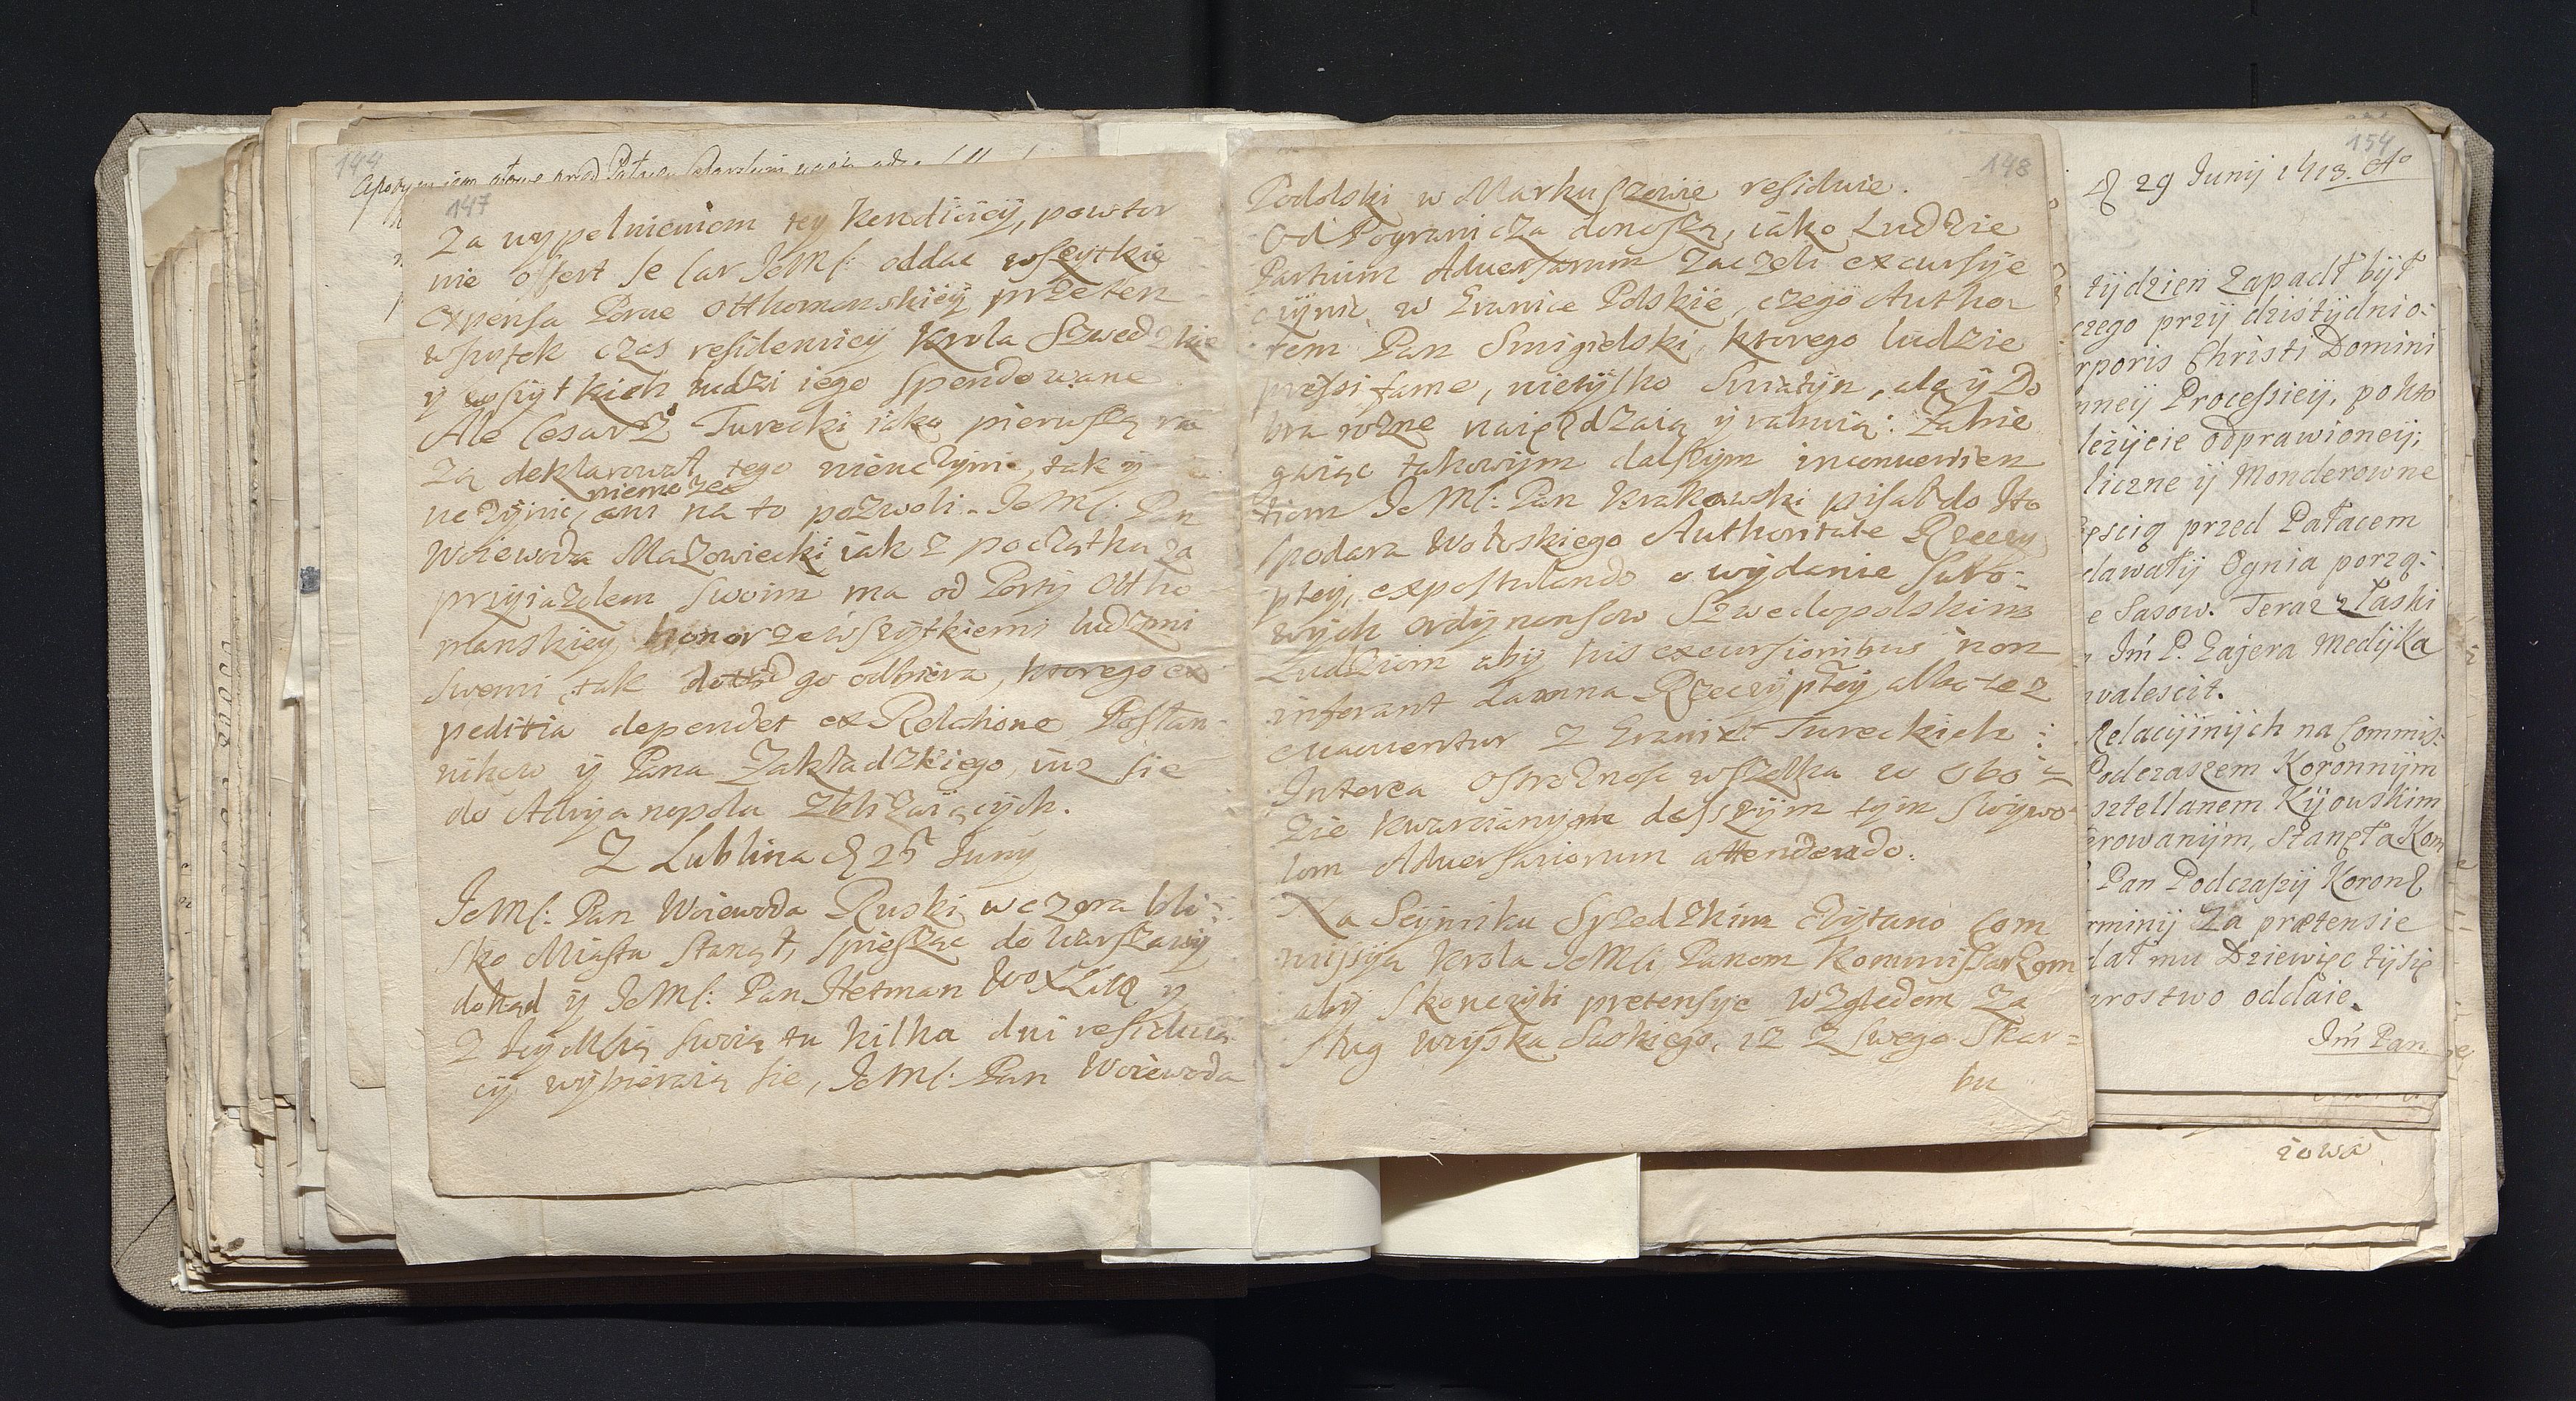 144
147
Za wypełnieniom tey kondiciey, powtor
nie offert se Car JeMſ: oddać wszytkie
expensa Porcie Otthomanskiey przeten
wszytek czas residenciey Krola Szwedzkie
y wszytkich ludzi iego spendowane.
Ale Cesarz Turecki iako pierwszą ra
zą deklarował tego nieuczynic, tak y
niemoze
uczynic, ani na to pozwoli. JeMſ: Pan
Woiewoda Mazowiecki iak z początku za
przyiazdem swoim ma od Porty Ottho
manskiey honor ze wszytkiemi ludzmi
swemi, tak dotąd go odbiera, ktorego ex
peditia dependet ex Relatione Posłan
nikow y Pana Zakładzkiego, iuz sie
do Adryanopola zbliżaiących.
Z Lublina d 25 Juny
JeMſ: Pan Woiewoda Ruski wczora bli:
sko Miasta stanął, spiesząc do Warszawy
dokąd y JeMſ: Pan Hetman WoXLitt y
z JeyMſią swoią tu kilka dni residuią
cy wybieraią sie, JeMſ: Pan Woiewoda
148
Podolski w Markuszowie residuie.
Od Pogranicza donoszą, iako Ludzie
Partium Adversarum zaczeli excursye
czynic w Granice Polskie, czego Author
tem Pan Smigielski, ktorego ludzie
pressi fame, nietylko Sniatyn, ale y Do
bra rozne naieżdzaią y rabuią: Zabie
gaiąc takowym dalszym inconvenien
tiom JeMſ: Pan Krakowski pisał do Ho
spodara Wołoskiego Authoritate Rzeczy
ptey, expostulando o wydanie suro:
wych ordynansow Szwedopolskim
Ludziom aby his excursionibus non
inferant damna Rzeczyptey, albo tez
evacuentur z Granic Tureckich:
Interea ostrożnosc wszelka w Obo:
zie kwarcianym dalszym tym swywo
lom Adversariorum attendendo.
Na Seymiku Srzedzkim czytano Com
missyą Krola JeMſi Panom Kommissarzom
aby skonczyli pretensye względem Za
sług woyska Saskiego, iz z swego Skar=
bu
154
d 29 Junij 1713. Ao
tydzien zapadł był
czego przy dzistydnio:
rporis Christi Domini
nneij Processieij, po kto
leżycie odprawioneij;
liczne ij Monderowne
ęscią przed Pałacem
dawały Ognia porzą:
e Sasow. Teraz z łaski
Jm P. Zajera Medyka
nvalescit.
Relacijnijch na Commis:
Podczaszem Koronnijm
sztellanem Kijowskim
erowanijm, stanęła Kom
Pan Podczaszij Koron
rminij za prætensie
dał mu Dziewięc tijsię
arostwo oddaie.
Jm Pan
zowa